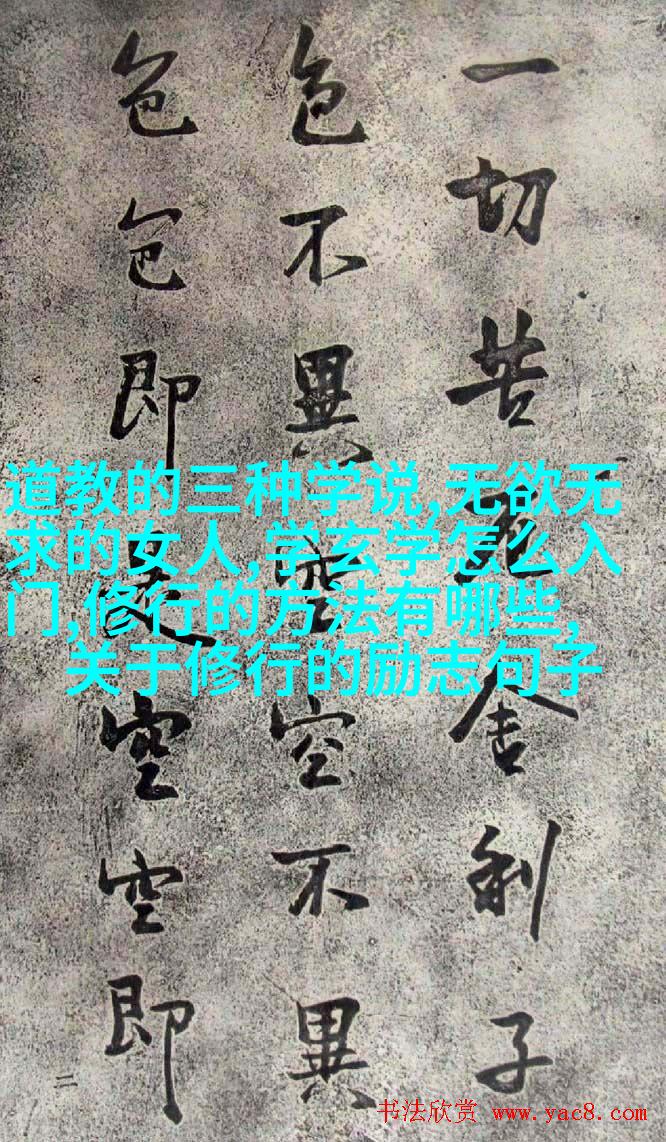 一切苦厄舍利子
色不異空空不異
色色即是空空即
二
道教的三种学说,无欲无
求的女人,学玄学怎么入
门,修行的方法有哪些,
关于修行的励志句子
书法欣赏 www.yac8.com